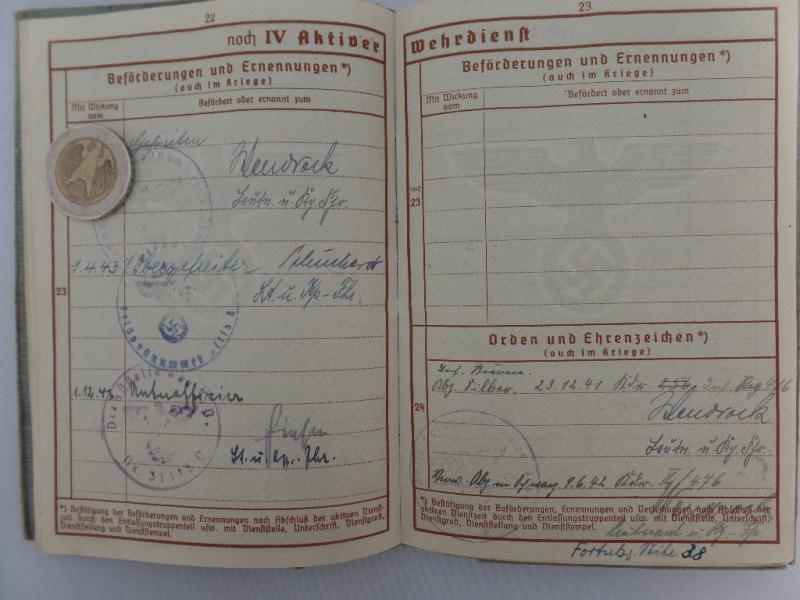 22
noch IV Aktiver
Beförderungen und Ernennungen*)
(auch im Kriege)
Mit Wirkung vom
Befördert oder ernannt zum
Gefreiten
Wendrock
Leutn. u. Kp. Fhr.
1.4.43 Obergefreiter
Lt. u. Kp.-Fhr.
23
1.12.43 Unteroffizier
Lt. u. Kp.-Fhr.
Dienststelle
Nr. 31115 C
*) Bestätigung der Beförderungen und Ernennungen nach Abschluß der aktiven Dienst-
zeit durch den Entlassungstruppenteil usw. mit Dienststelle, Unterschrift, Dienstgrad,
Dienststellung und Dienststempel.
23
Wehrdienst
Beförderungen und Ernennungen*)
(auch im Kriege)
Mit Wirkung vom
Befördert oder ernannt zum
noch
23
Orden und Ehrenzeichen*)
(auch im Kriege)
Inf. Sturm
Abz. Silber. 23.12.41 Kdr. Inf. Reg 476
24
Wendrock
Leutn. u. Kp. Fhr.
Verw. Abz. in Schwarz 9.6.42 Kdr. 476
*) Bestätigung der Beförderungen, Ernennungen und Verleihungen nach Abschluß der
aktiven Dienstzeit durch den Entlassungstruppenteil usw. mit Dienststelle, Unterschrift,
Dienstgrad, Dienststellung und Dienststempel.
Leutnant u. Kp.-Fhr
Fortsetzg. Seite 38